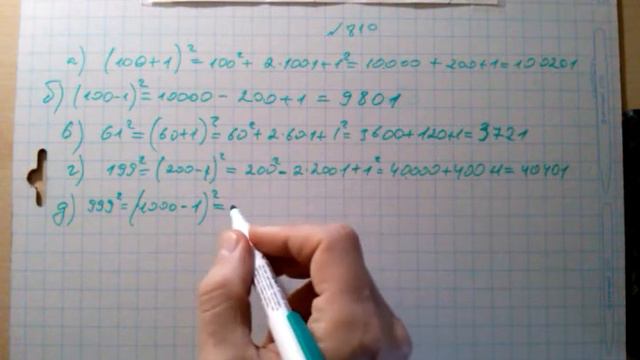 №810
а) (100+1)² = 100² + 2·100·1 + 1² = 10000 + 200 + 1 = 100201
б) (100-1)² = 10000 - 200 + 1 = 9801
в) 61² = (60+1)² = 60² + 2·60·1 + 1² = 3600 + 120 + 1 = 3721
г) 199² = (200-1)² = 200² - 2·200·1 + 1² = 40000 + 400 + 1 = 40401
д) 999² = (1000-1)² =